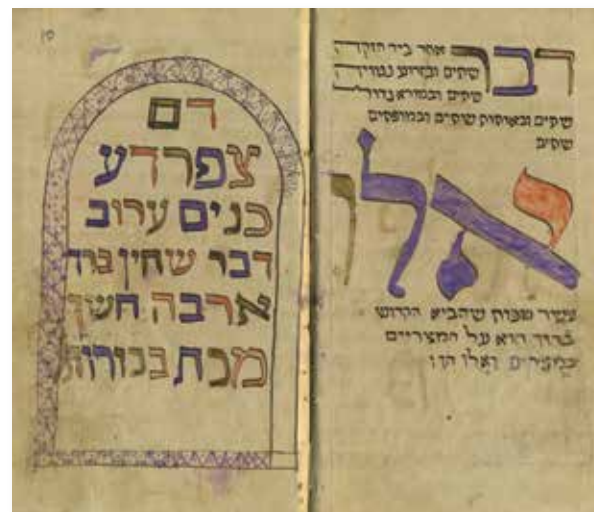 דבר אחר ביד חזקה
שתים ובזרוע נטויה
שתים ובמורא גדול
שתים ובאותות שתים ובמופתים
שתים
אלו
עשר מכות שהביא הקדוש
ברוך הוא על המצריים
במצרים ואלו הן
דם
צפרדע
כנים ערוב
דבר שחין ברד
ארבה חשך
מכת בכורות